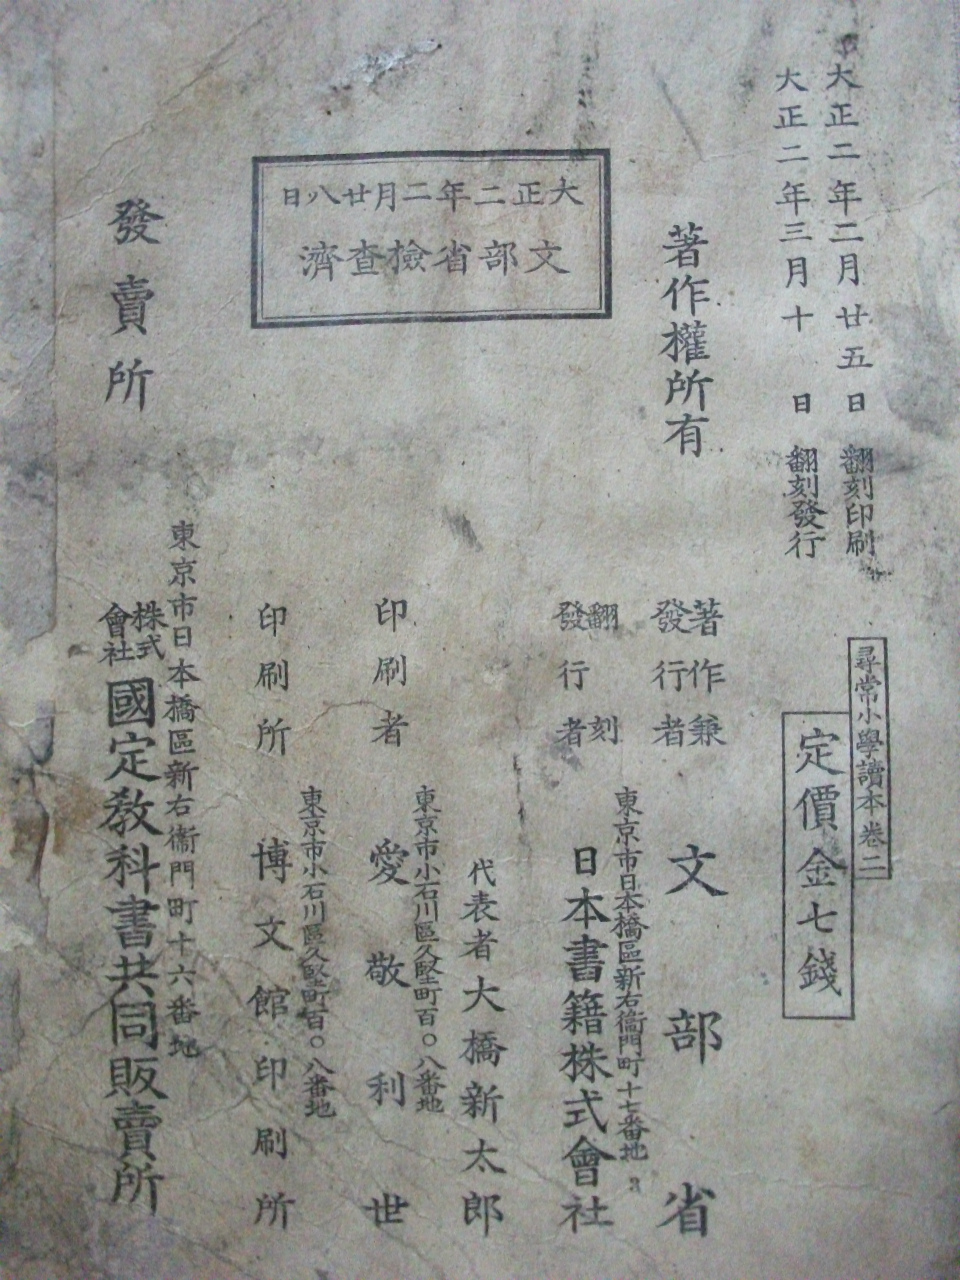 大正二年二月廿五日 翻刻印刷
大正二年三月十日 翻刻發行
尋常小學讀本卷二
定價金七錢
著作權所有
大正二年二月廿八日
文部省檢查濟
著作兼
發行者
文部省
翻刻
發行者
東京市日本橋區新右衞門町十七番地
日本書籍株式會社
代表者大橋新太郎
印刷者
東京市小石川區久堅町百〇八番地
愛敬利世
印刷所
東京市小石川區久堅町百〇八番地
博文館印刷所
發賣所
東京市日本橋區新右衞門町十六番地
株式
會社
國定敎科書共同販賣所